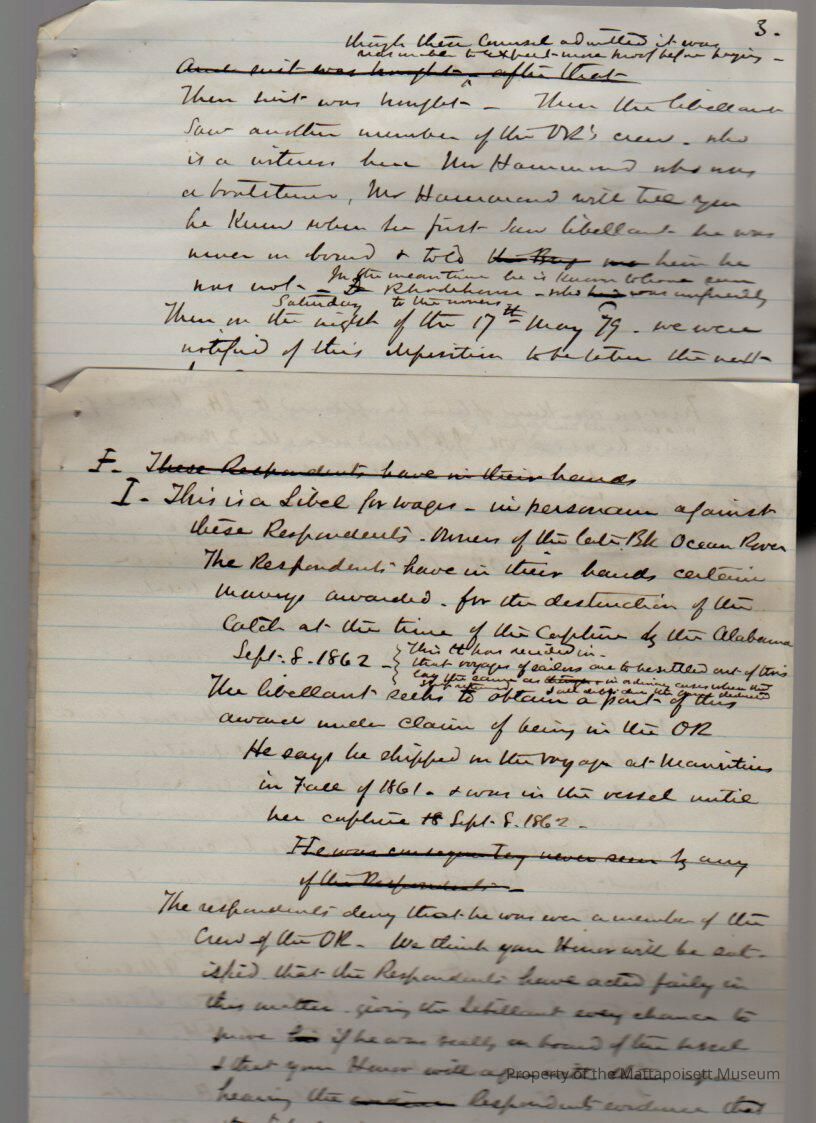 3.
though these Counsel admitted it was
reasonable to expect more proof before buying -
And suit was bought - after that
Then suit was bought - Then the libellant
Saw another member of the OR's crew - who
is a witness here Mr Hammond who was
a boatsteerer, Mr Hammond will tell you
he Knew when he first Saw libellant he was
never on board & told the Boy him he
was not -
In the meantime he is Known to have seen
Rhodehouse - who his was unfriendly
to the owners
Saturday
Then on the night of the 17th May 79 - we were
notified of this deposition to be taken the next
I - These Respondents have in their hands
I - This is a Libel for wages - in personam against
these Respondents - Owners of the late Bk Ocean Rover
The Respondents have in their hands certain
moneys awarded - for the destruction of the
Catch at the time of the Capture by the Alabama
Sept. 8. 1862 -
This Ct has decided in -
that voyages of sailors are to be settled out of this
The libellant seeks to obtain a part of this
award under claim of being in the OR
He says he shipped on the voyage at Mauritius
in Fall of 1861 - & was in the vessel until
her capture Sept. 8. 1862 -
He was consequently never seen by any
of the Respondents -
The respondents deny that he was ever a member of the
Crew of the OR - We think your Honor will be sat-
isfied that the Respondents have acted fairly in
this matter - giving the Libellant every chance to
prove if he was really on board of the vessel
& that your Honor will
hearing the evidence Respondents evidence that
Property of the Mattapoisett Museum